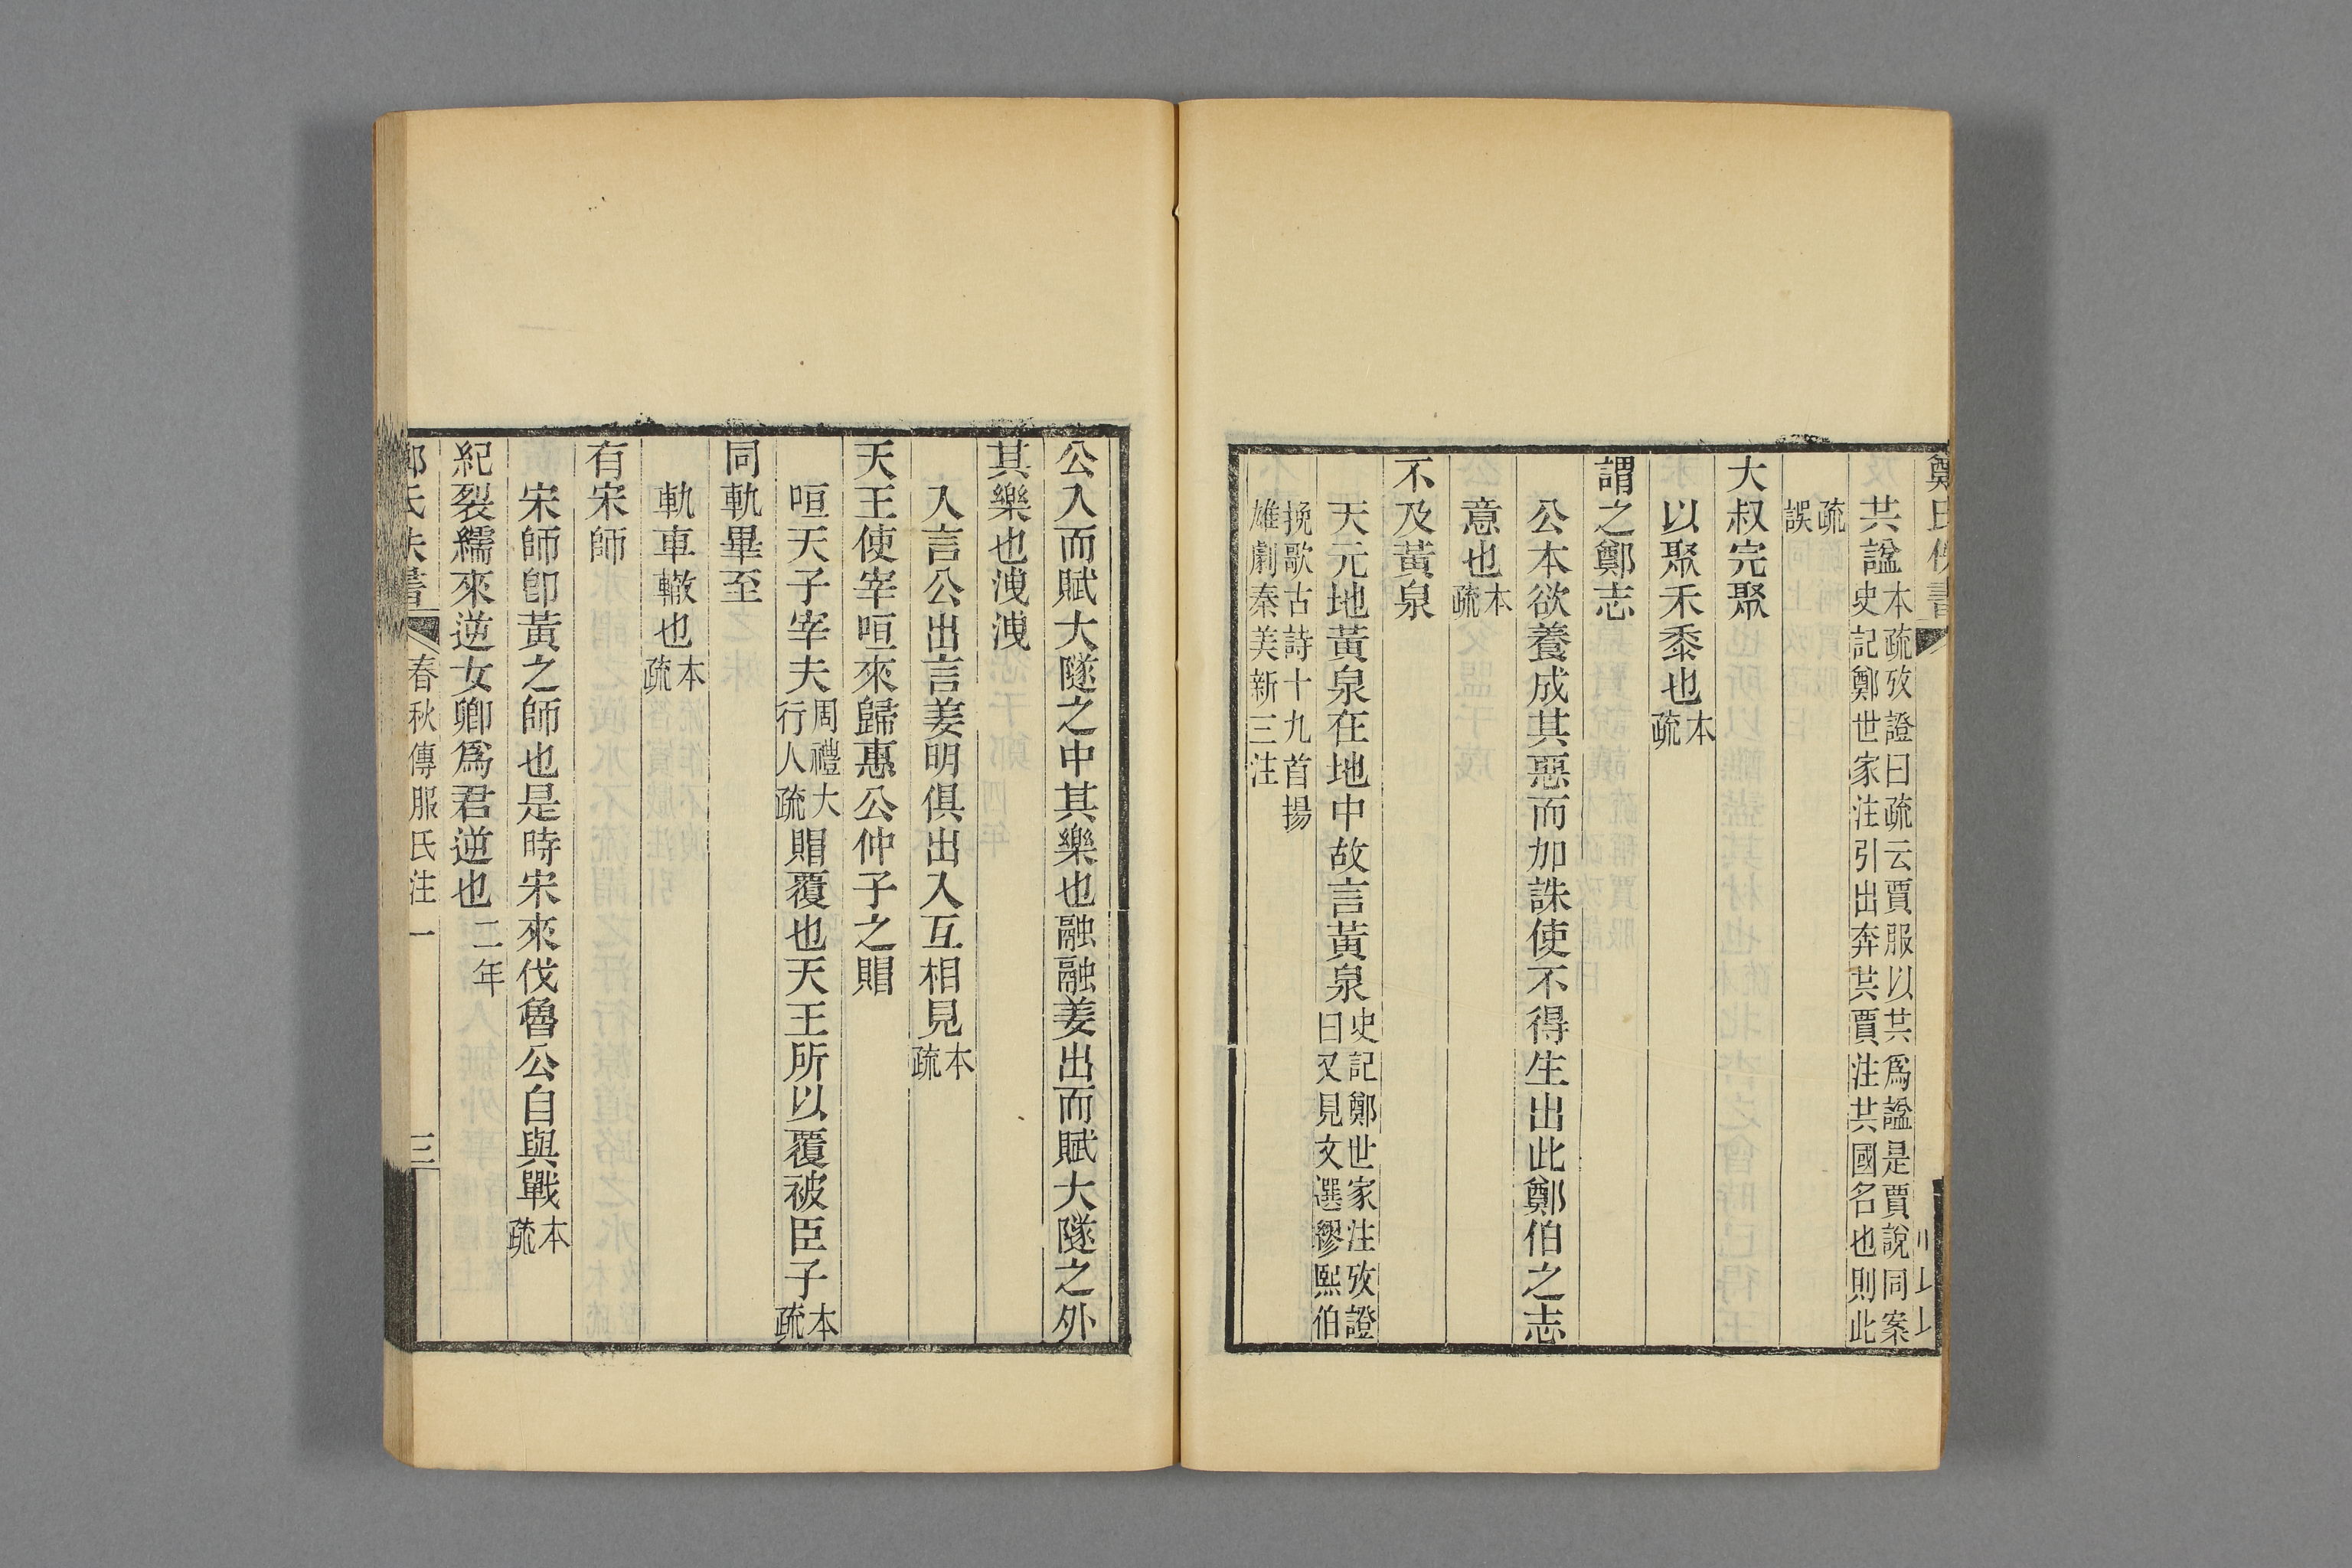 鄭氏佚書
共諡本疏攷證曰疏云賈服以共爲諡是賈說同案
史記鄭世家注引出奔共賈注共國名也則此
疏
誤
大叔完聚
以聚禾黍也本疏
謂之鄭志
公本欲養成其惡而加誅使不得生出此鄭伯之志
意也本疏
不及黃泉
天元地黃泉在地中故言黃泉史記鄭世家注攷證
曰又見文選繆熙伯
挽歌古詩十九首揚
雄劇秦美新三注
公入而賦大隧之中其樂也融融姜出而賦大隧之外
其樂也洩洩
入言公出言姜明俱出入互相見本疏
天王使宰咺來歸惠公仲子之賵
咺天子宰夫周禮大
行人疏
賵覆也天王所以覆被臣子本疏
同軌畢至
軌車轍也本疏
有宋師
宋師卽黃之師也是時宋來伐魯公自與戰本疏
紀裂繻來逆女卿爲君逆也二年
鄭氏佚書
春秋傳服氏注一
三